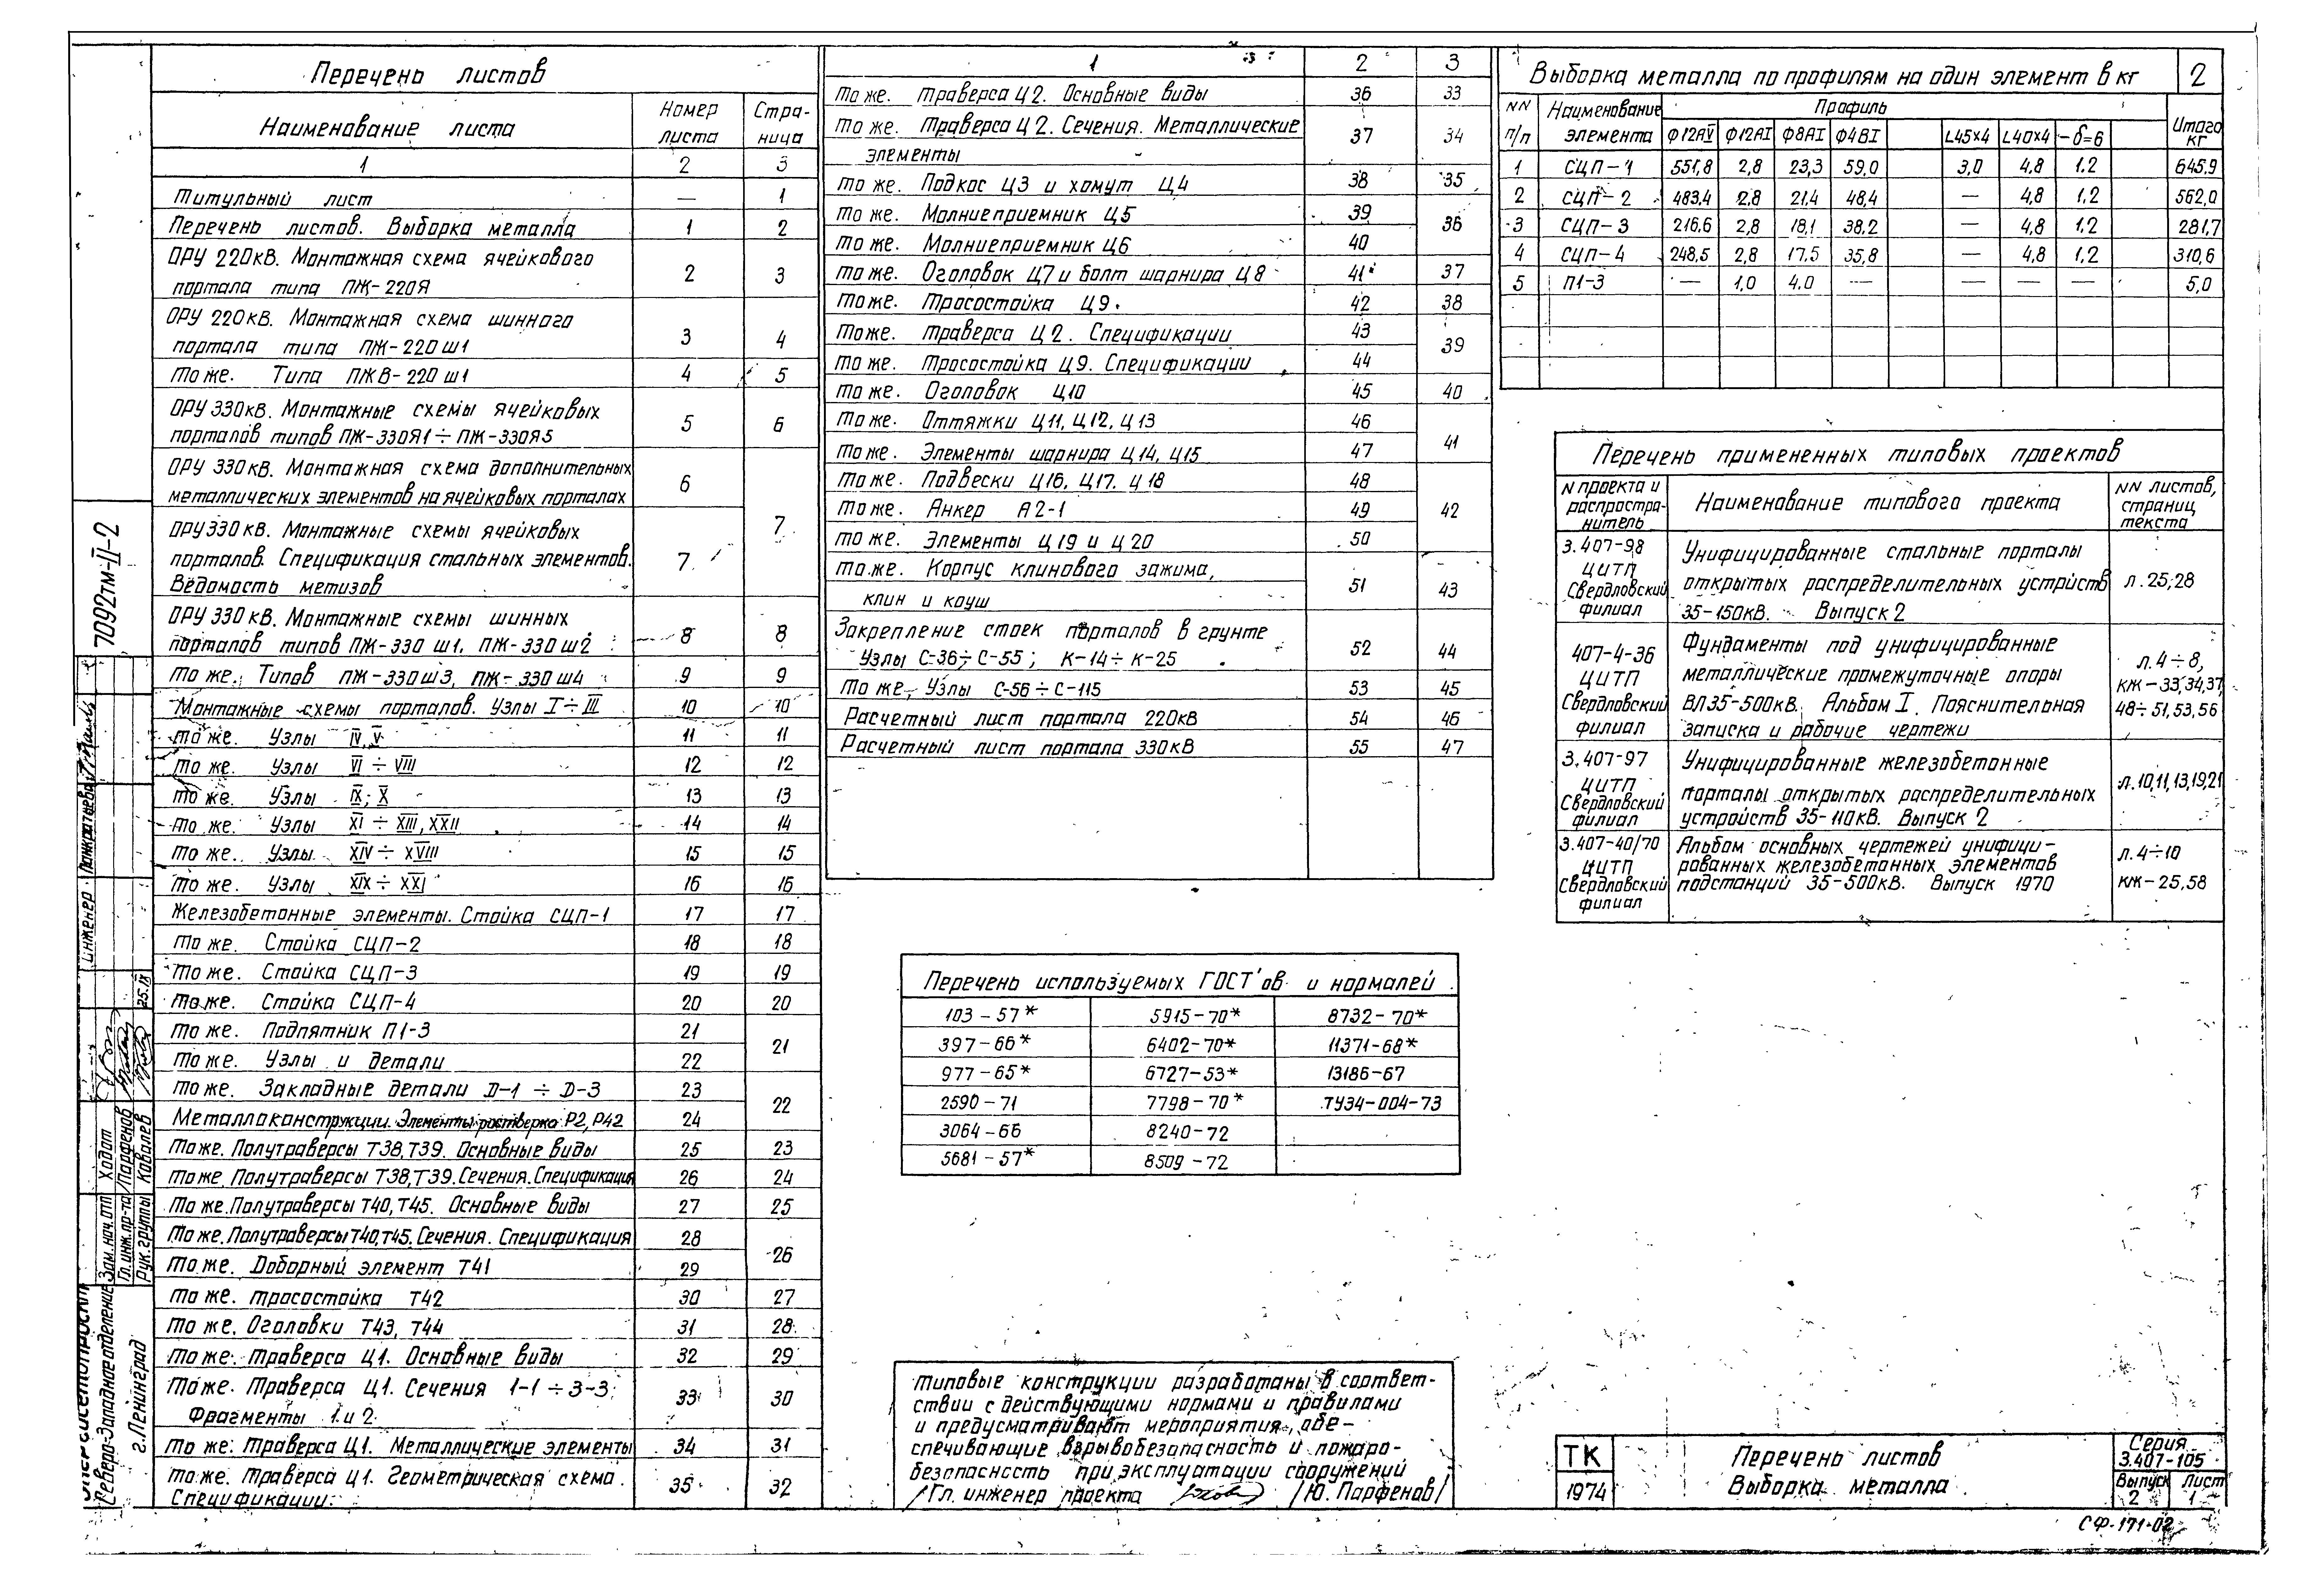 Перечень листов
Наименование листа Номер листа Стра-ница
1 2 3
Титульный лист — 1
Перечень листов. Выборка металла 1 2
ОРУ 220кВ. Монтажная схема ячейкового
портала типа ПЖ-220Я 2 3
ОРУ 220кВ. Монтажная схема шинного
портала типа ПЖ-220ш1 3 4
То же. Типа ПЖВ-220ш1 4 5
ОРУ 330кВ. Монтажные схемы ячейковых
порталов типов ПЖ-330Я1÷ПЖ-330Я5 5 6
ОРУ 330кВ. Монтажная схема дополнительных
металлических элементов на ячейковых порталах 6
ОРУ 330кВ. Монтажные схемы ячейковых
порталов. Спецификация стальных элементов. 7 7
Ведомость метизов
ОРУ 330кВ. Монтажные схемы шинных
порталов типов ПЖ-330 ш1, ПЖ-330ш2 8 8
То же. Типов ПЖ-330ш3, ПЖ-330ш4 9 9
Монтажные схемы порталов. Узлы I÷III 10 10
То же. Узлы IV, V 11 11
То же. Узлы VI ÷ VIII 12 12
То же. Узлы IX; X 13 13
То же. Узлы XI ÷ XIII, XXII 14 14
То же. Узлы XIV ÷ XVIII 15 15
То же. Узлы XIX ÷ XXI 16 16
Железобетонные элементы. Стойка СЦП-1 17 17
То же. Стойка СЦП-2 18 18
То же. Стойка СЦП-3 19 19
То же. Стойка СЦП-4 20 20
То же. Подпятник П1-3 21 21
То же. Узлы и детали 22
То же. Закладные детали D-1 ÷ D-3 23 22
Металлоконструкции. Элементы ростверка Р2, Р42 24
То же. Полутраверсы Т38, Т39. Основные виды 25 23
То же. Полутраверсы Т38, Т39. Сечения. Спецификация 26 24
То же. Полутраверсы Т40, Т45. Основные виды 27 25
То же. Полутраверсы Т40, Т45. Сечения. Спецификация 28 26
То же. Доборный элемент Т41 29
То же. Тросостойка Т42 30 27
То же. Оголовки Т43, Т44 31 28
То же. Траверса Ц1. Основные виды 32 29
То же. Траверса Ц1. Сечения 1-1 ÷ 3-3;
Фрагменты 1 и 2 33 30
То же. Траверса Ц1. Металлические элементы 34 31
То же. Траверса Ц1. Геометрическая схема.
Спецификации. 35 32
1 2 3
То же. Траверса Ц2. Основные виды 36 33
То же. Траверса Ц2. Сечения. Металлические
элементы 37 34
То же. Подкос Ц3 и хомут Ц4 38 35
То же. Молниеприемник Ц5 39 36
То же. Молниеприемник Ц6 40
То же. Оголовок Ц7 и болт шарнира Ц8 41 37
То же. Тросостойка Ц9. 42 38
То же. Траверса Ц2. Спецификации 43 39
То же. Тросостойка Ц9. Спецификации 44
То же. Оголовок Ц10 45 40
То же. Оттяжки Ц11, Ц12, Ц13 46 41
То же. Элементы шарнира Ц14, Ц15 47
То же. Подвески Ц16, Ц17, Ц18 48
То же. Анкер А2-1 49 42
То же. Элементы Ц19 и Ц20 50
То же. Корпус клинового зажима,
клин и коуш 51 43
Закрепление стоек порталов в грунте
Узлы С-36÷С-55; К-14÷К-25 52 44
То же, Узлы С-56÷С-115 53 45
Расчетный лист портала 220кВ 54 46
Расчетный лист портала 330кВ 55 47
Выборка металла по профилям на один элемент в кг 2
NN п/п Наименование элемента Профиль Итого кг
Ф12АV Ф12АI Ф8АI Ф4ВI L45×4 L40×4 -δ=6
1 СЦП-1 551,8 2,8 23,3 59,0 3,0 4,8 1.2 645.9
2 СЦП-2 483.4 2.8 21,4 48,4 — 4,8 1.2 562,0
3 СЦП-3 216,6 2,8 18,1 38,2 — 4,8 1.2 281,7
4 СЦП-4 248,5 2,8 17,5 35,8 — 4,8 1,2 310,6
5 П1-3 — 1,0 4.0 — — — — 5,0
Перечень примененных типовых проектов
N проекта и распростра-нитель Наименование типового проекта NN листов, страниц текста
3.407-98 ЦИТП Свердловский филиал
Унифицированные стальные порталы
открытых распределительных устройств
35-150кВ. Выпуск 2
л. 25,28
407-4-36 ЦИТП Свердловский филиал
Фундаменты под унифицированные
металлические промежуточные опоры
ВЛ35-500кВ. Альбом I. Пояснительная
записка и рабочие чертежи
л. 4÷8,
КЖ-33,34,37,
48÷51,53,56
3.407-97 ЦИТП Свердловский филиал
Унифицированные железобетонные
порталы открытых распределительных
устройств 35-110кВ. Выпуск 2
л.10,11,13,19,21
3.407-40/70 ЦИТП Свердловский филиал
Альбом основных чертежей унифици-
рованных железобетонных элементов
подстанций 35-500кВ. Выпуск 1970
л.4÷10
КЖ-25,58
Перечень используемых ГОСТ'ов и нормалей
103-57* 5915-70* 8732-70*
397-66* 6402-70* 11371-68*
977-65* 6727-53* 13186-67
2590-71 7798-70* ТУ34-004-73
3064-66 8240-72
5681-57* 8509-72
Типовые конструкции разработаны в соответ-
ствии с действующими нормами и правилами
и предусматривают мероприятия, обе-
спечивающие взрывобезопасность и пожаро-
безопасность при эксплуатации сооружений
/Гл. инженер проекта /Ю. Парфенов/
ТК
1974
Перечень листов
Выборка металла
Серия
3.407-105
Выпуск 2 Лист 1
СФ-171-02
7092тм-II-2
инженер Панкратьева
25.IX
Зам. нач. отп Ходот
Гл. инж. пр-та Парфенов
Рук. группы Ковалев
Северо-Западное отделение
г. Ленинград